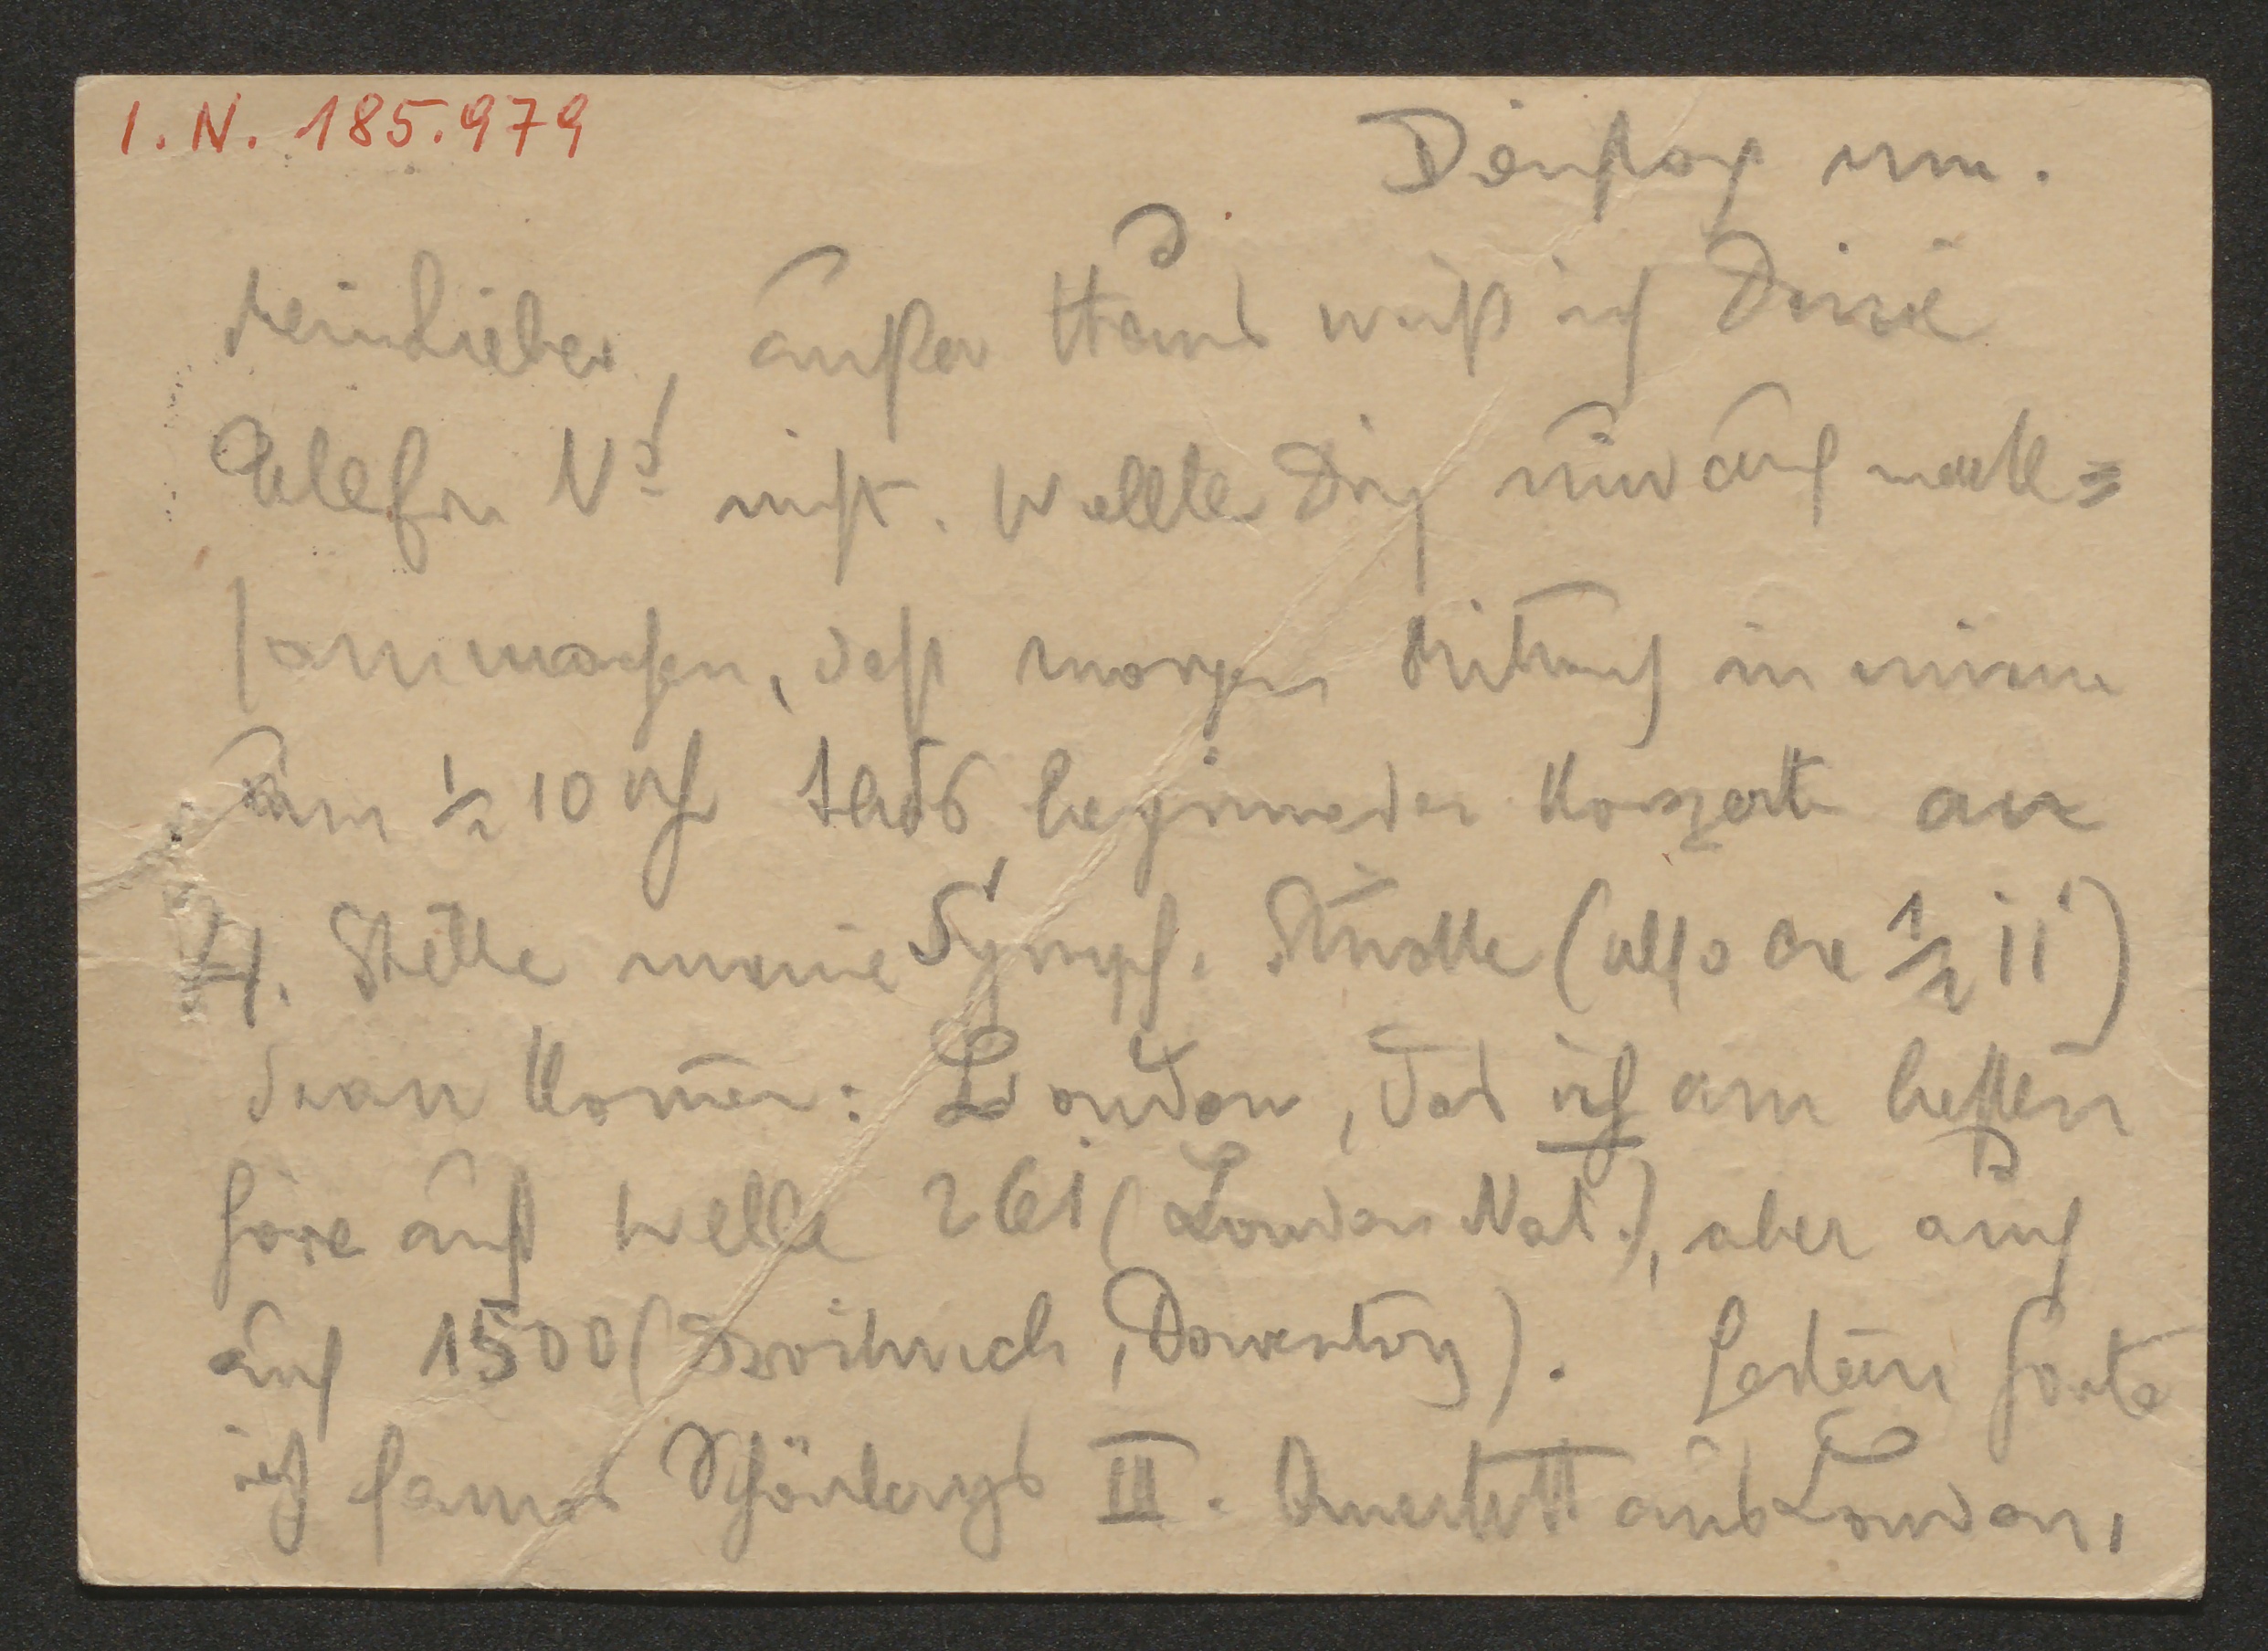 I.N. 185.979
Dienstag nm.
Mein Lieber, außer Haus weiß ich Deine
Telefon Nr nicht. Wollte Dich nur aufmerk=
sam machen, daß morgen Mittwoch in einem
um ½ 10 Uhr abds beginnenden Konzert an
4. Stelle meine Symph. Stücke (also ca ½ 11)
dran kommen: London, das ich am besten
höre auf Welle 261 (London Nat.), aber auch
auf 1500 (Droitwich, Daventry). Gestern hörte
ich famos Schönbergs III. Quartett aus London,